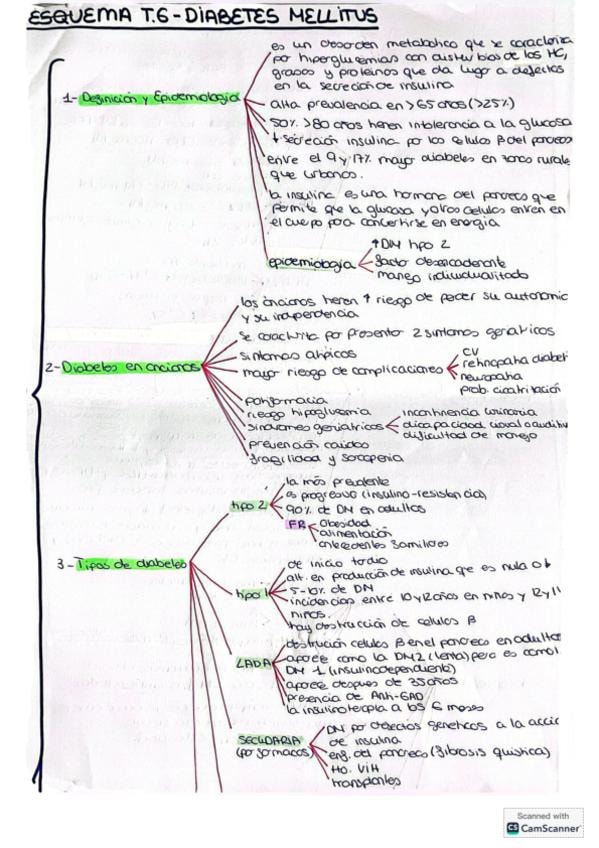 ESQUEMA T.6 - DIABETES MELLITUS
1- Definición y Epidemiologia
es un desorden metabolico que se caracteriza
por hiperglucemias con disturbios de los HC,
grasas y proteinas que da lugar a defectos
en la secreción de insulina
alta prevalencia en >65 años (>25%)
50% >80 años tienen intolerancia a la glucosa
↓ secreción insulina por las celulas β del pancreas
entre el 9 y 17% mayor diabetes en zonas rurale
que urbanas.
la insulina es una hormona del pancreas que
permite que la glucosa y otras celulas entren en
el cuerpo para convertirse en energia
epidemiologia
↑ DM tipo 2
factor desencadenante
manejo individualizado
2- Diabetes en ancianos
los ancianos tienen ↑ riesgo de perder su autonomi
y su independencia
se caracteriza por presentar 2 sintomas geriatricos
sintomas atipicos
mayor riesgo de complicaciones
CV
retinopatia diabet
neuropatia
prob. cicatrización
polifarmacia
riesgo hipoglucemia
sindromes geriatricos
incontinencia urinaria
discapacidad visual o auditiv
dificultad de manejo
prevención caidas
fragilidad y sarcopenia
3- Tipos de diabetes
tipo 2
la más prevalente
es progresiva (insulino-resistencia)
90% de DM en adultos
FR
obesidad
alimentación
antecedentes familiares
tipo 1
de inicio tardio
alt. en producción de insulina que es nula o b
5-10% de DM
incidencias entre 10 y 12 años en niños y 12 y 11
niñas.
hay destrucción de celulas β
LADA
destrucción celulas β en el pancreas en adultos
aparece como la DM2 (lenta) pero es como l
DM 1 (insulinodependiente)
aparece despues de 35 años
presencia de Anti-GAD
la insulinoterapia a los 6 meses
SECUDARIA
(por farmacos)
DM por defectos geneticos a la acció
de insulina
enf. del pancreas (fibrosis quistica)
tto. VIH
transplantes
Scanned with
CS CamScanner